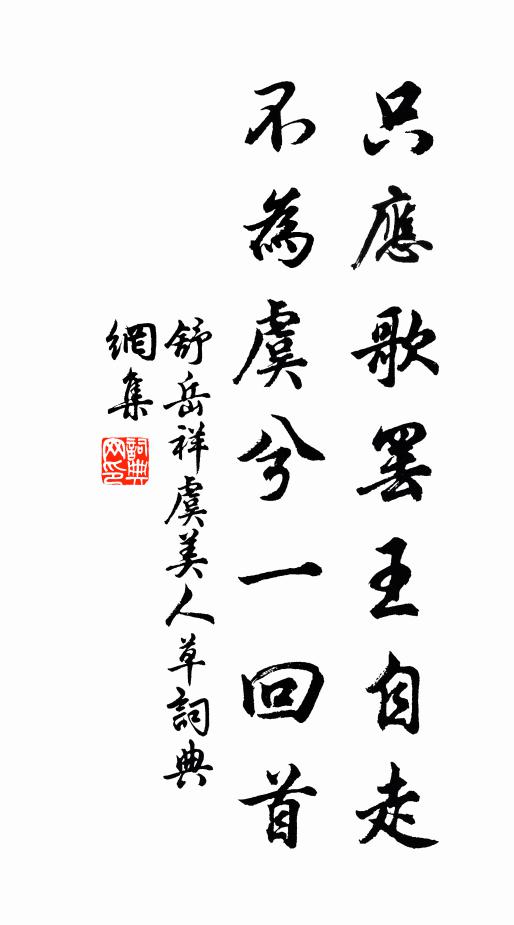 只應歌罷王自走
不為虞兮一回首
舒岳祥虞美人草詞典
網集
詞典
网印